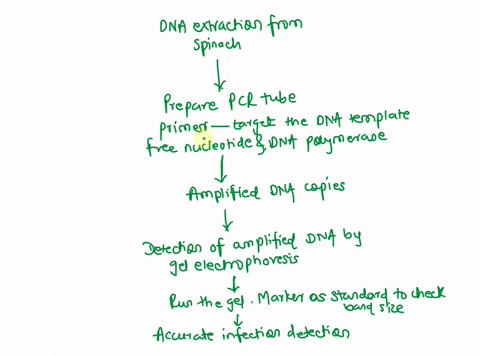 DNA extraction from
spinach
Prepare PCR tube
primer — target the DNA template
free nucleotide & DNA polymerase
Amplified DNA copies
Detection of amplified DNA by
gel electrophoresis
Run the gel. Marker as standard to check
band size
Accurate infection detection